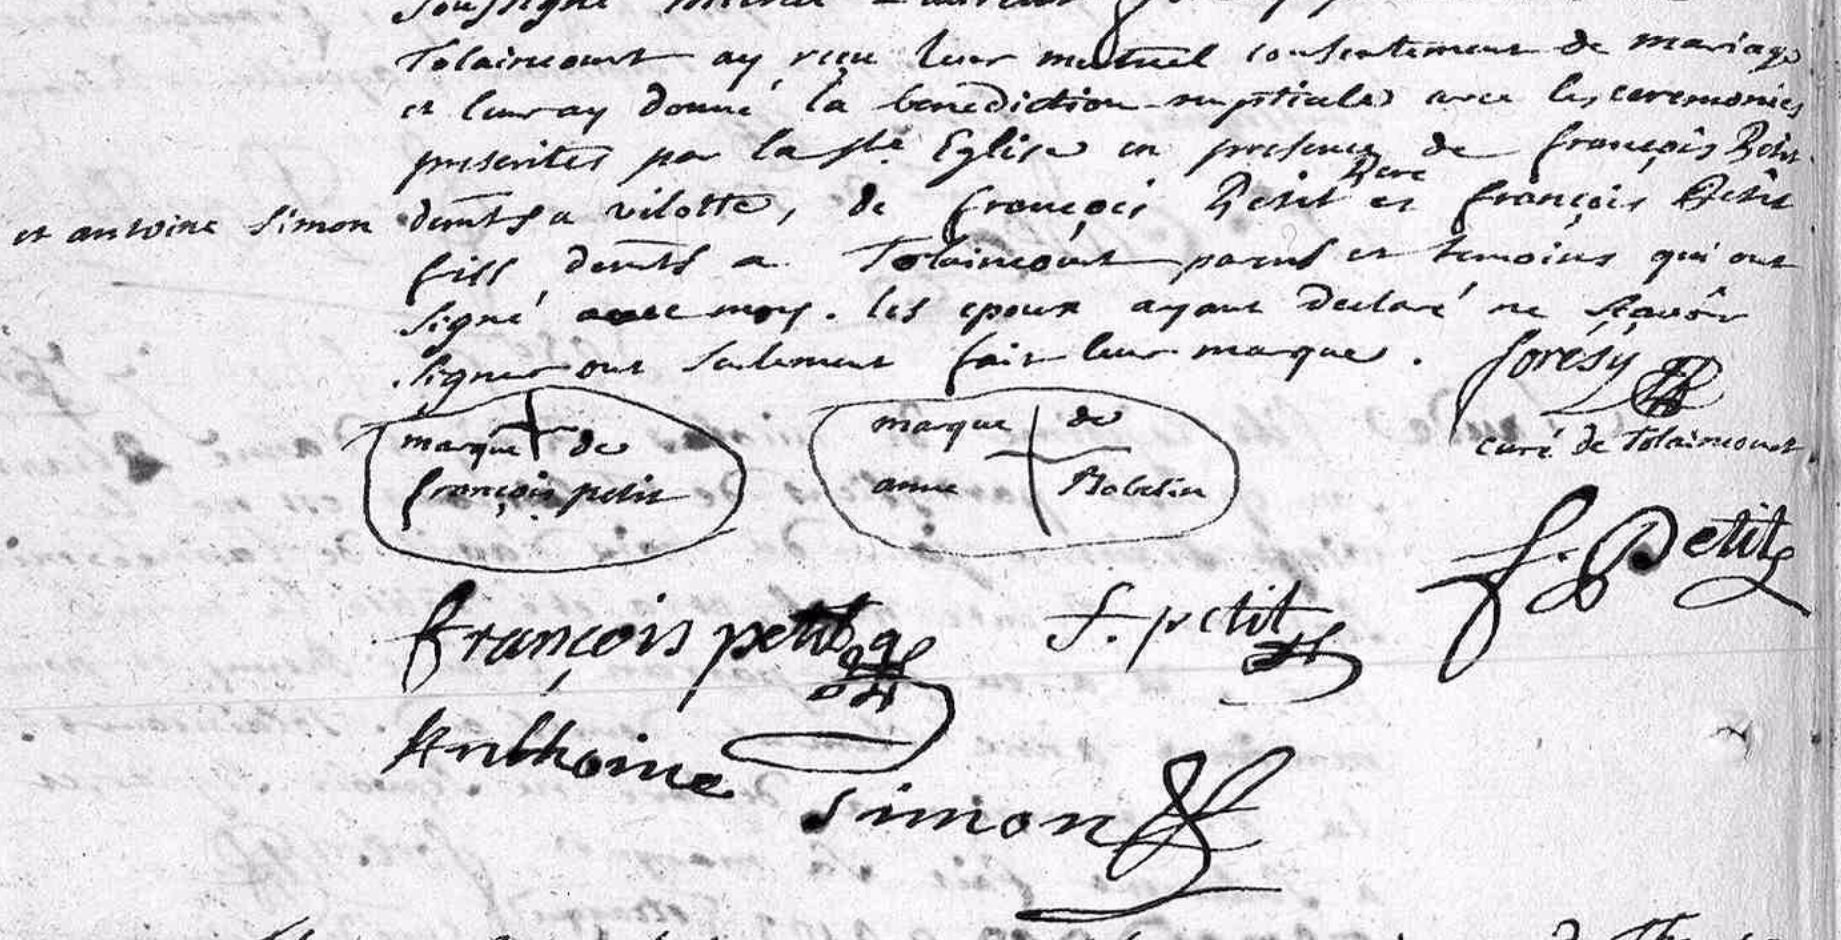 soussigné
Tolaincourt ay reçu leur mutuel consentement de mariage
et leur ay donné la benediction nuptiale avec les ceremonies
prescrites par la ste Eglise en presence de françois Petit
et antoine simon demts a vilotte, de françois Petit Pere et françois Petit
fils demts a Tolaincourt parens et temoins qui ont
signé avec moy. les epoux ayant declaré ne sçavoir
signer ont seulement fait leur marque.
foresy
curé de Tolaincourt
marque de
françois petit
marque de
anne Robelin
f. Petit
françois petit
f. petit
Anthoine
simon